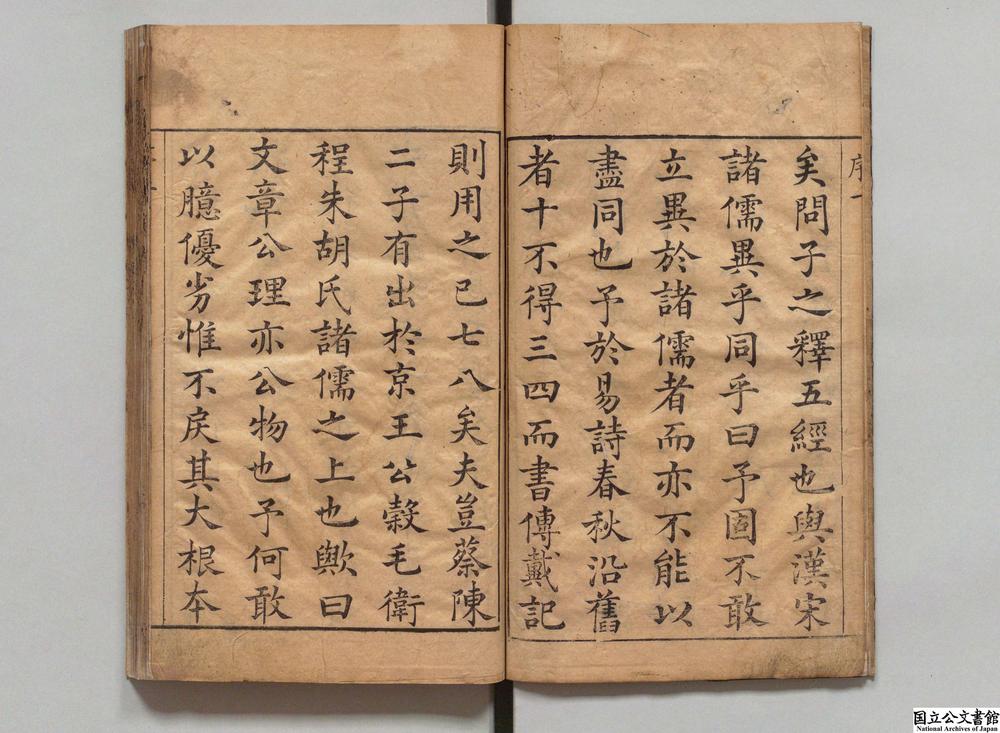 序
矣問子之釋五經也與漢宋
諸儒異乎同乎曰予固不敢
立異於諸儒者而亦不能以
盡同也予於易詩春秋沿舊
者十不得三四而書傳戴記
則用之已七八矣夫豈蔡陳
二子有出於京王公糓毛衛
程朱胡氏諸儒之上也歟曰
文章公理亦公物也予何敢
以臆優劣惟不戾其大根本
国立公文書館
National Archives of Japan